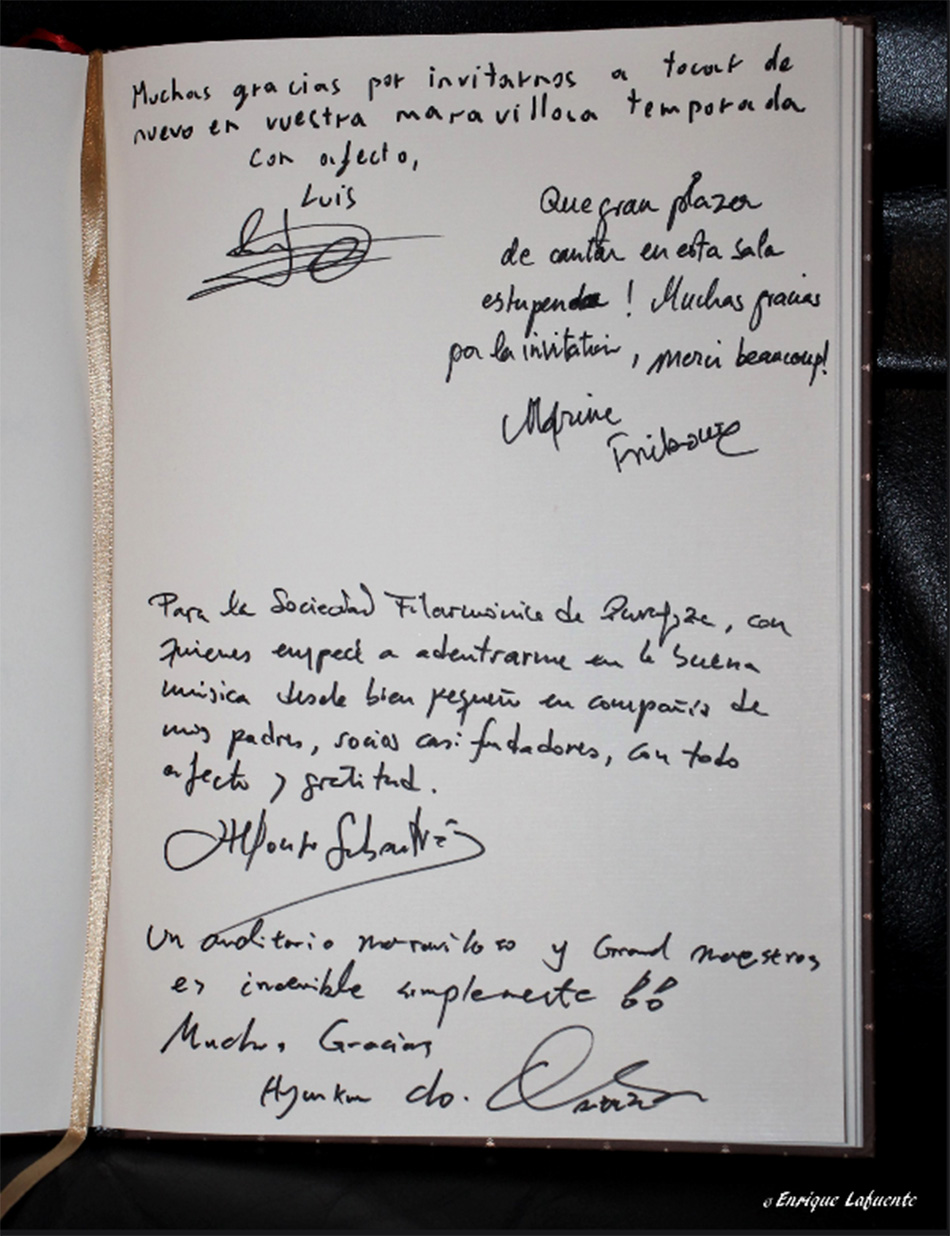 Muchas gracias por invitarnos a tocar de
nuevo en vuestra maravillosa temporada
Con afecto,
Luis
Que gran plazer
de cantar en esta sala
estupenda ! Muchas gracias
por la invitation, merci beaucoup!
Marine
Fribourg
Para la Sociedad Filarmónica de Zaragoza, con
quienes empecé a adentrarme en la buena
música desde bien pequeño en compañía de
mis padres, socios casi fundadores, con todo
afecto y gratitud.
Alfonso Sebastián
Un auditorio maravilloso y Grand maestros
es increible simplemente !!
Muchas Gracias
Hyunkun Cho.
© Enrique Lafuente